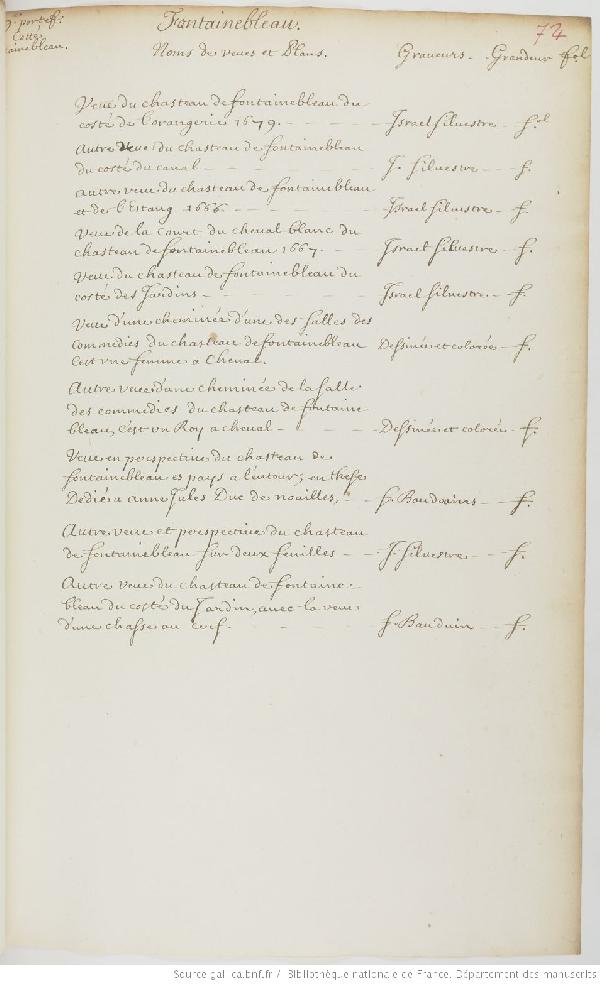 Fontainebleau.
74
portef.
Cotté
Noms de veues et Plans. Graveurs. Grandeur fol
Veue du chasteau de fontainebleau du
costé de l'orangerie 1679. Israel Silvestre fol
Autre veue du chasteau de fontainebleau
du costé du canal J. Silvestre f.
autre veue du chasteau de fontainebleau
et de l'Estang 1666. Israel Silvestre f.
Veue de la Court du cheval blanc du
chasteau de fontainebleau 1667. Israel Silvestre f.
Veue du chasteau de fontainebleau du
costé des Jardins Israel Silvestre f.
Veue d'une cheminée d'une des salles des
commedies du chasteau de fontainebleau Dessinée et colorée f.
C'est une femme a Cheval.
Autre vuee d'une cheminée de la salle
des commedies du chasteau de fontaine-
bleau, c'est un Roy a cheval Dessinée et colorée f.
Veue en perspective du chasteau de
fontainebleau es pays a l'entour; en these
Dediée a Anne Jules Duc de noailles, f. Baudouins f.
Autre veue et perspective du chasteau
de fontainebleau sur deux feuilles J. Silvestre f.
Autre veue du chasteau de fontaine-
bleau du costé du Jardin, avec la veue
d'une chasse au cerf. f. Bauduin f.
Source gallica.bnf.fr / Bibliothèque nationale de France. Département des manuscrits